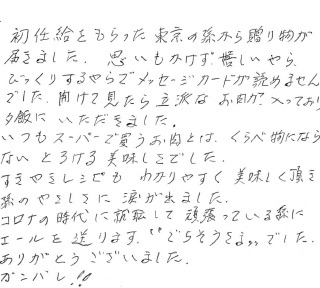 初任給をもらった東京の孫から贈り物が
届きました。思いもかけず嬉しいやら、
びっくりするやらでメッセージカードが読めません
でした。開けて見たら立派なお肉が入っており
夕飯にいただきました。
いつもスーパーで買うお肉とは、くらべ物になら
ないとろける美味しさでした。
すきやきレシピもわかりやすく美味しく頂き
孫のやさしさに涙が出ました。
コロナの時代に就職して頑張っている孫に
エールを送ります。"ごちそうさま〟でした。
ありがとうございました。
ガンバレ!!